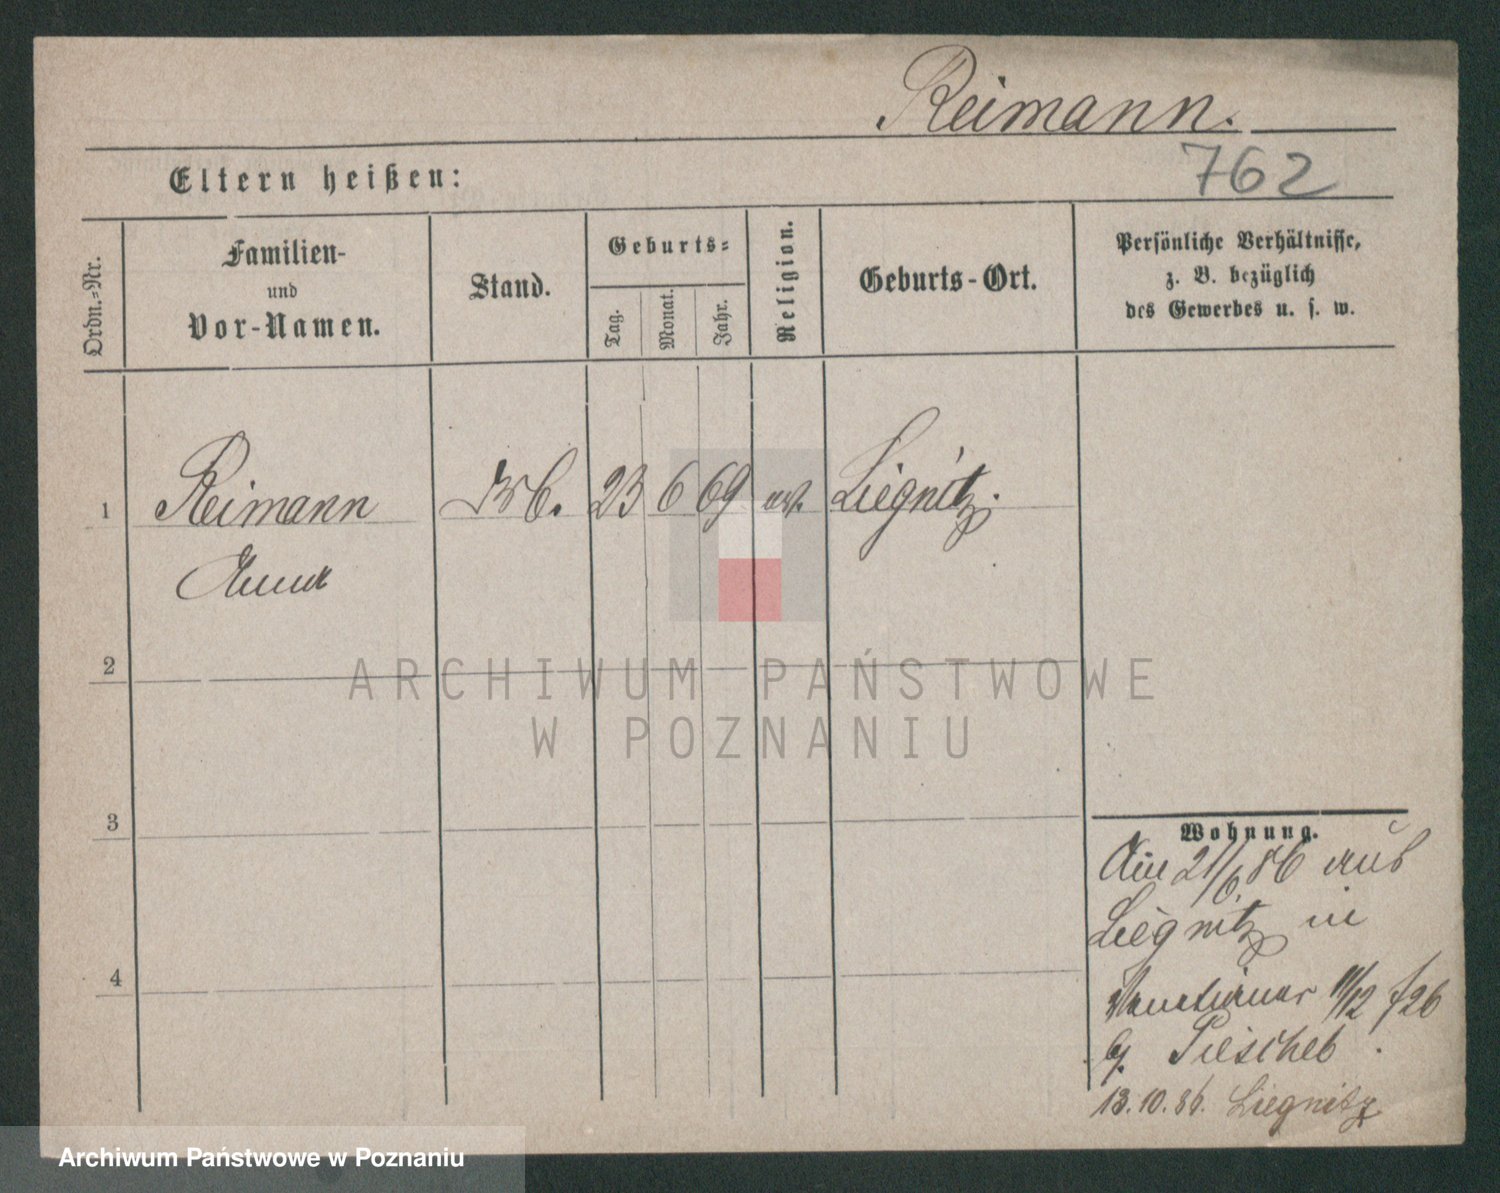 Reimann.
762
Eltern heißen:
Ordn.=Nr.
Familien-
und
Vor-Namen.
Stand.
Geburts=
Tag.
Monat.
Jahr.
Religion.
Geburts-Ort.
Persönliche Verhältnisse,
z. B. bezüglich
des Gewerbes u. s. w.
1
Reimann
Anna
23
6
69
ev.
Liegnitz.
2
ARCHIWUM PAŃSTWOWE
W POZNANIU
3
Wohnung.
21/6. 86 aus
Liegnitz in
11/12
Piescheb
4
13.10.86. Liegnitz
Archiwum Państwowe w Poznaniu